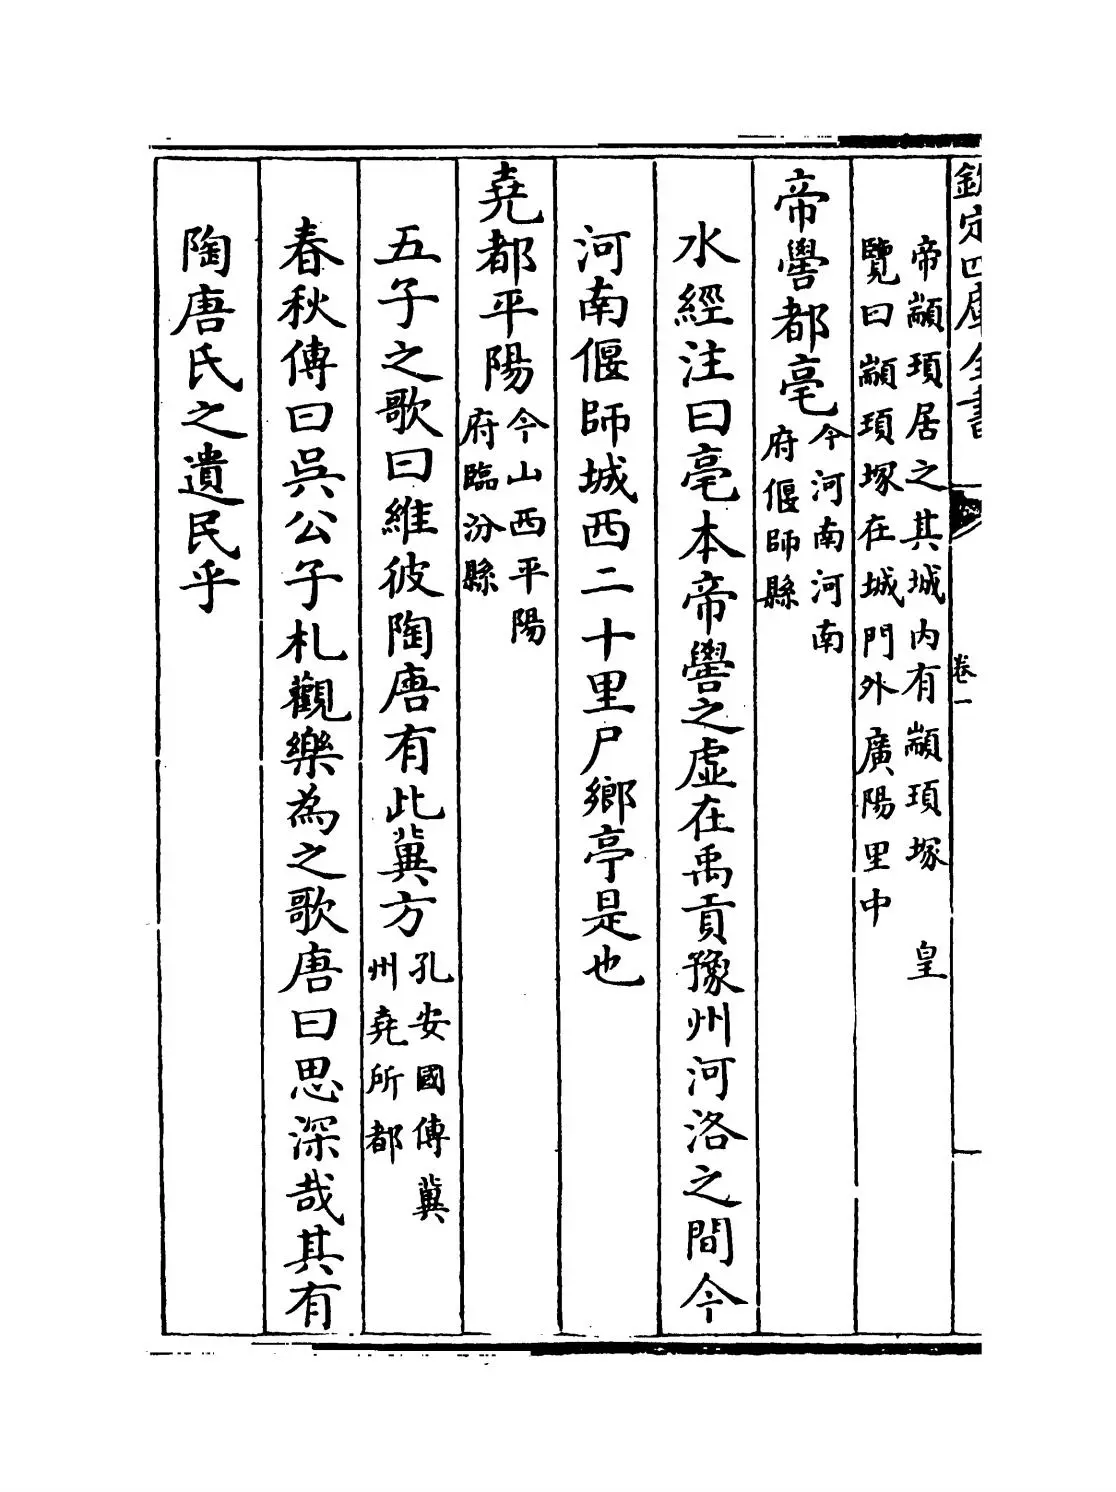 欽定四庫全書
卷一
帝顓頊居之其城内有顓頊塚 皇
覽曰顓頊塚在城門外廣陽里中
帝嚳都亳今河南河南
府偃師縣
水經注曰亳本帝嚳之虛在禹貢豫州河洛之間今
河南偃師城西二十里尸鄉亭是也
堯都平陽今山西平陽
府臨汾縣
五子之歌曰維彼陶唐有此冀方孔安國傳冀
州堯所都
春秋傳曰吳公子札觀樂為之歌唐曰思深哉其有
陶唐氏之遺民乎